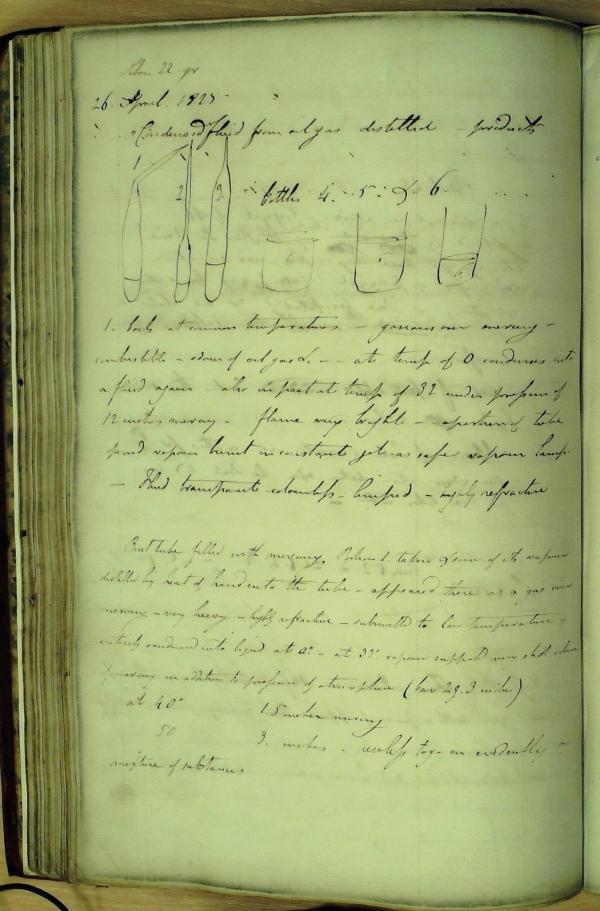 22 gr
26 April 1825
Condensed fluid from oil gas distilled - products
1
2 3 bottles 4. 5. & 6.
6
1. boils at common temperatures - gaseous over mercury -
combustible - odour of oil gas &c. - - at temp of 0 condenses into
a fluid again - also in part at temp of 32 under pressure of
12 inches mercury - flame very bright - aperture of tube
vapour burnt in constant jet as safe vapour lamp.
- Fluid transparent - colourless - limpid - highly refractive
Bent tube filled with mercury Portion 1. taken & some of its vapour
distilled by heat of hand into the tube - appeared there as a gas over
mercury - very heavy - highly refractive - submitted to low temperature -
entirely condensed into liquid at 0° - at 32° vapour supported very short column
of mercury in addition to pressure of atmosphere (bar 29.3 inches)
at 40° 1.5 inches mercury
50 3. inches - useless to go on evidently a
mixture of substances